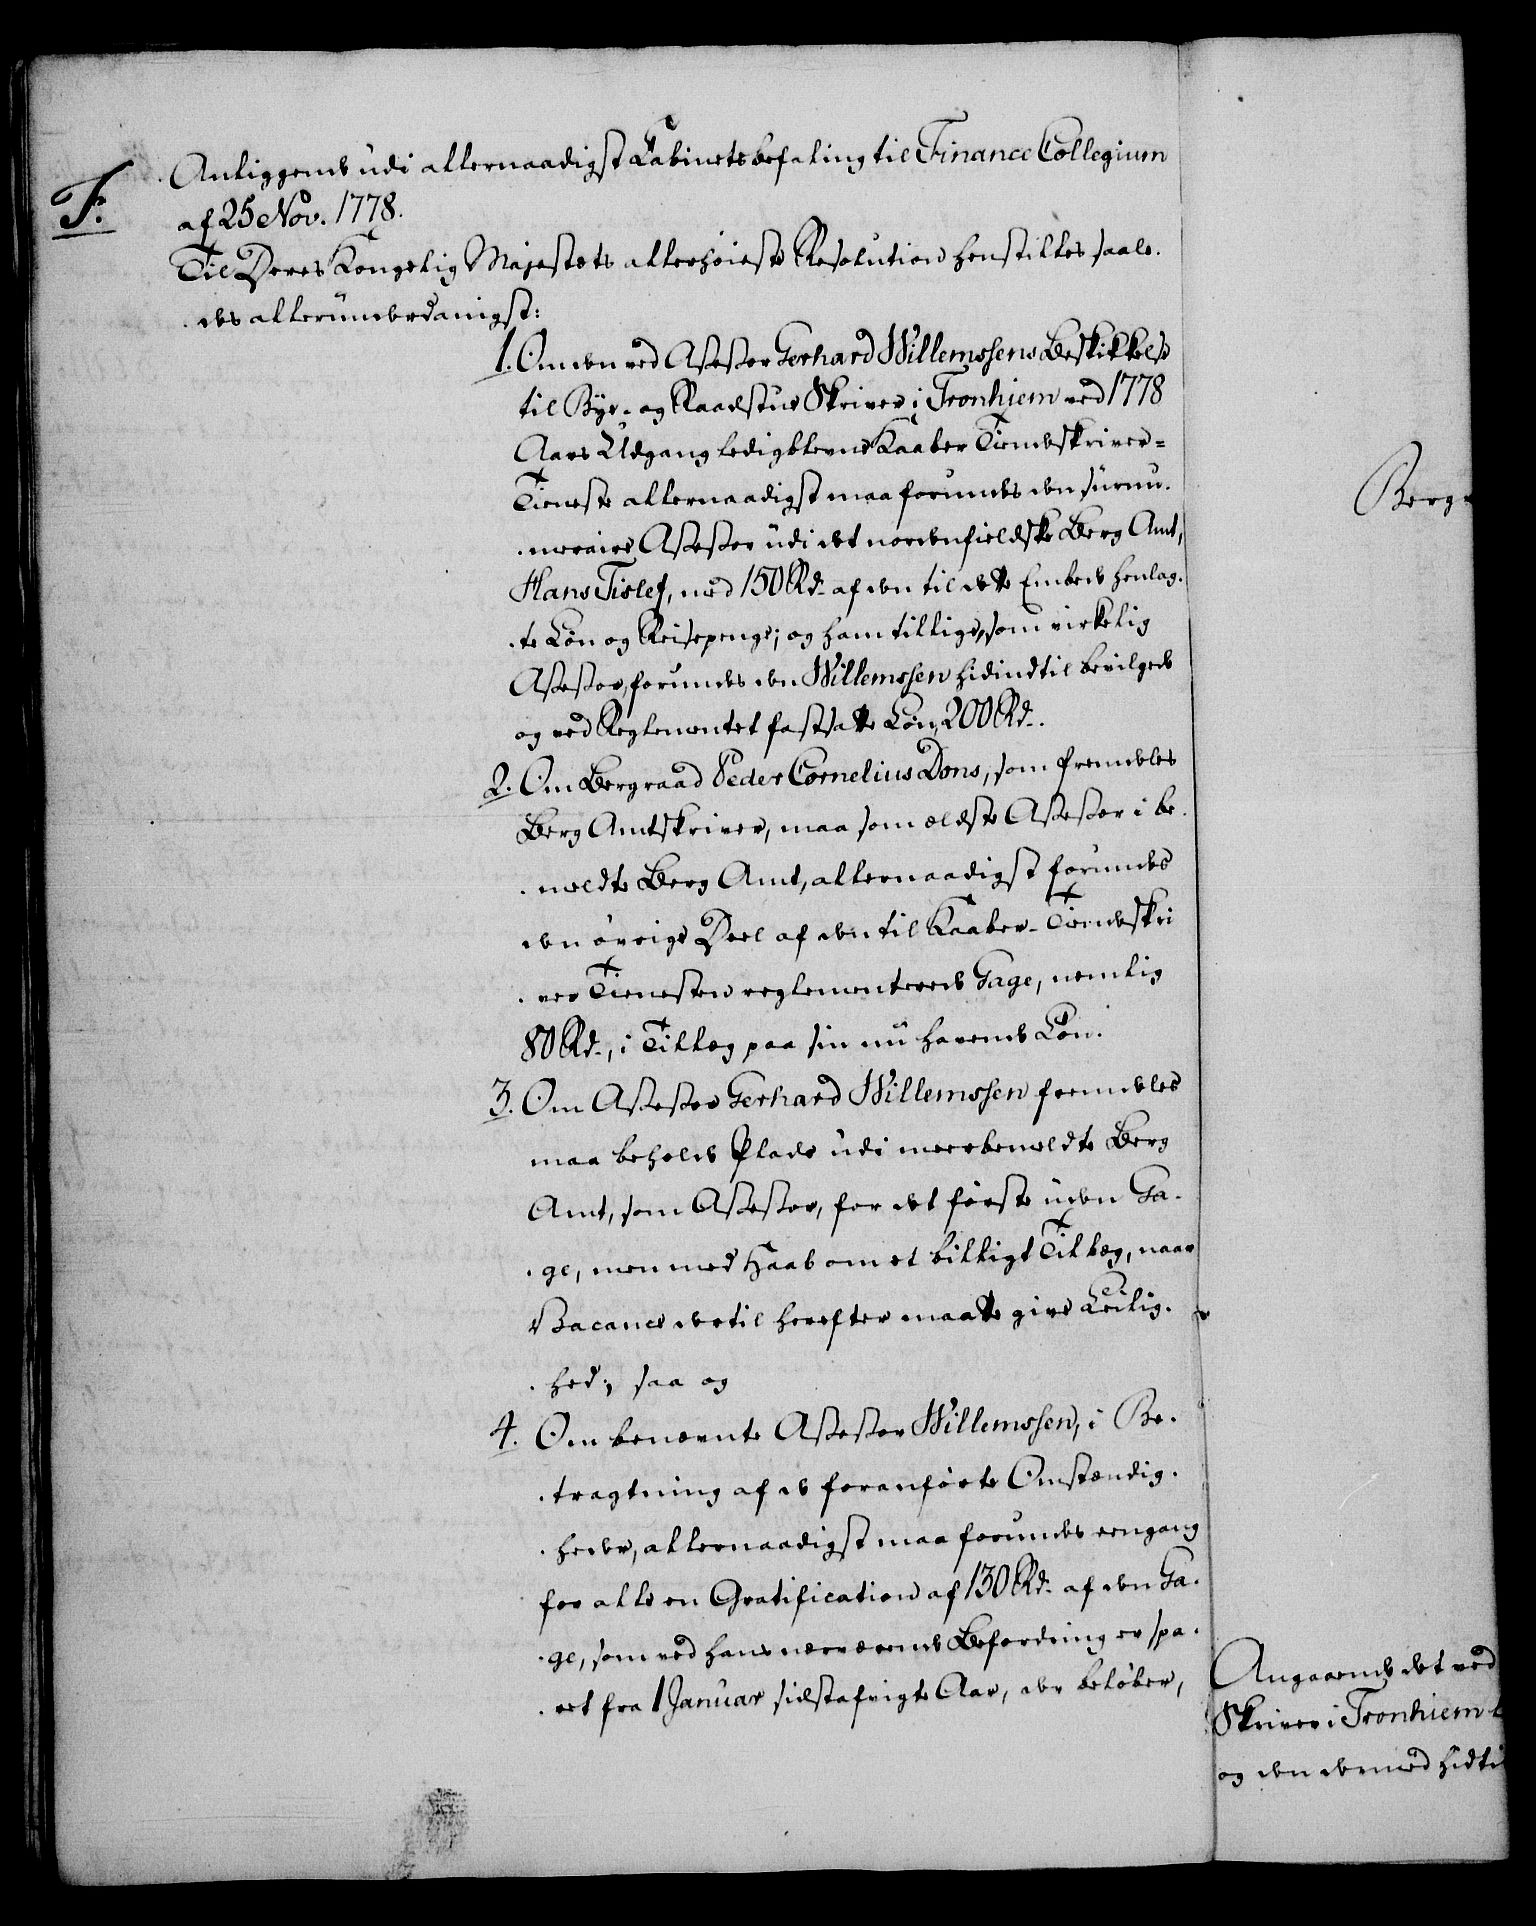 F.
Anliggende udi allernaadigst Cabinetsbefaling til Finance Collegium
af 25 Nov. 1778.
Til Deres Kongelig Majestets allerhøieste Resolution henstilles saale-
des allerunderdanigst:
1. Om den ved Assessor Gerhard Willemssens Beskikkelse
til Bye- og Raadstue Skriver i Tronhiem ved 1778
Aars Udgang ledigblevne Kaaber Tiendeskriver-
Tieneste allernaadigst maa forundes den surnu-
meraire Assessor udi det nordenfieldske Berg Amt,
Hans Tislef, med 150 Rd. af den til dette Embede henlag-
te Løn og Reisepenge; og ham tillige, som virkelig
Assessor, forundes den Willemssen hidindtil bevilgede
og ved Reglementet fastsatte Løn, 200 Rd.
2. Om Bergraad Peder Cornelius Dons, som fremdeles
Berg Amtskriver, maa som ældste Assessor i be-
meldte Berg Amt, allernaadigst forundes
den øvrige Deel af den til Kaaber-Tiendeskri
ver Tienesten reglementerede Gage, nemlig
80 Rd., i Tillæg paa sin nu havende Løn.
3. Om Assessor Gerhard Willemssen fremdeles
maa beholde Plads udi meerbemeldte Berg
Amt, som Assessor, for det første uden Ga-
ge, men med Haab om et billigt Tillæg, naar
Vacance dertil herefter maatte give Leilig-
hed; saa og
4. Om benævnte Assessor Willemssen, i Be-
tragtning af de foranførte Omstændig-
heder, allernaadigst maa forundes eengang
for alle en Gratification af 130 Rd. af den Ga-
ge, som ved hans nærværende Befordring er spa-
ret fra 1 Januar sidstafvigte Aar, der beløber,
Berg
Angaaende det ved
Skriver i Tronhiem
og den dermed hidti